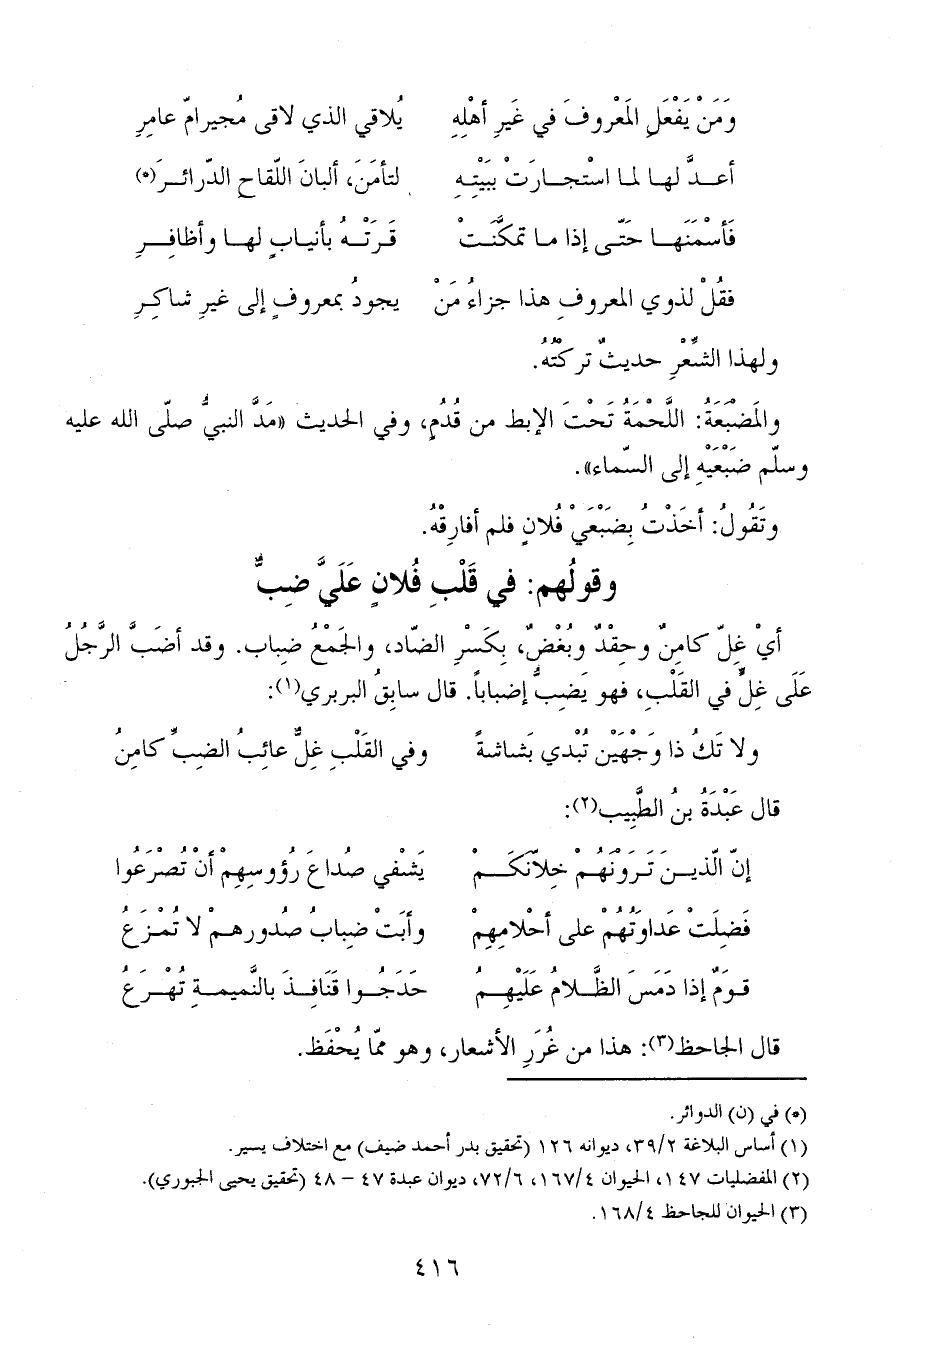 وَمَنْ يَفْعَلِ المَعْروفَ في غَيرِ أهْلِهِ يُلاقي الذي لاقى مُجيرامّ عامرِ
أعــدَّ لهـا لما اسْتجـارَتْ بَبيْتِـهِ لتأمَنَ، ألبانَ اللّقاحِ الدّرائـرَ(*)
فَأسْمَنَهـا حَتّـى إذا ما تمكَّنَـتْ فَـرَتْـهُ بأنيابٍ لهـا وأظافِـرِ
فقُلْ لذوي المعروفِ هذا جزاءُ مَنْ يجودُ بمعروفٍ إلى غيرِ شاكِـرِ
ولهذا الشّعْرِ حديثٌ تركتُهُ.
والمَضْبَعَةُ: اللَّحْمَةُ تَحْتَ الإبط من قُدُمٍ، وفي الحديث «مَدَّ النبيُّ صلّى الله عليه
وسلّم ضَبْعَيْهِ إلى السّماء».
وتَقُولُ: أخَذْتُ بِضَبْعَيْ فُلانٍ فلم أفارِقْهُ.
وقولُهم: في قَلْبِ فُلانٍ عَلَيَّ ضِبٌّ
أيْ غِلّ كامِنٌ وحِقْدٌ وبُغْضٌ، بِكَسْرِ الضّاد، والجَمْعُ ضباب. وقد أضَبَّ الرَّجُلُ
عَلَى غِلٍّ في القَلْبِ، فهو يَضِبُّ إضباباً. قال سابقُ البربري(١):
ولا تَكُ ذا وَجْهَيْن تُبْدي بَشاشةً وفي القَلْبِ غِلٌّ عائبُ الضبِّ كامنُ
قال عَبْدَةُ بنُ الطَّبِيب(٢):
إنّ الّذيـنَ تَـرَوْنَهُـمْ خِلاّنَكَـمْ يَشْفي صُداعَ رؤُوسِهِمْ أنْ تُصْرَعُوا
فَضِلَتْ عَداوَتُهُمْ على أحْلامِهِمْ وأبَتْ ضِبابُ صُدُورهـمْ لا تُمْـزَعُ
قـومٌ إذا دَمَسَ الظَّـلامُ عَلَيْهِـمُ حَدَجُـوا قَنَافِـذَ بالنَّميمـةِ تُهْـرَعُ
قال الجاحظ(٣): هذا من غُرَرِ الأشعار، وهو ممّا يُحْفَظ.
(*) في (ن) الدوائر.
(١) أساس البلاغة ٣٩/٢، ديوانه ١٢٦ (تحقيق بدر أحمد ضيف) مع اختلاف يسير.
(٢) المفضليات ١٤٧، الحيوان ١٦٧/٤، ٧٢/٦، ديوان عبدة ٤٧ – ٤٨ (تحقيق يحيى الجبوري).
(٣) الحيوان للجاحظ ١٦٨/٤.
٤١٦